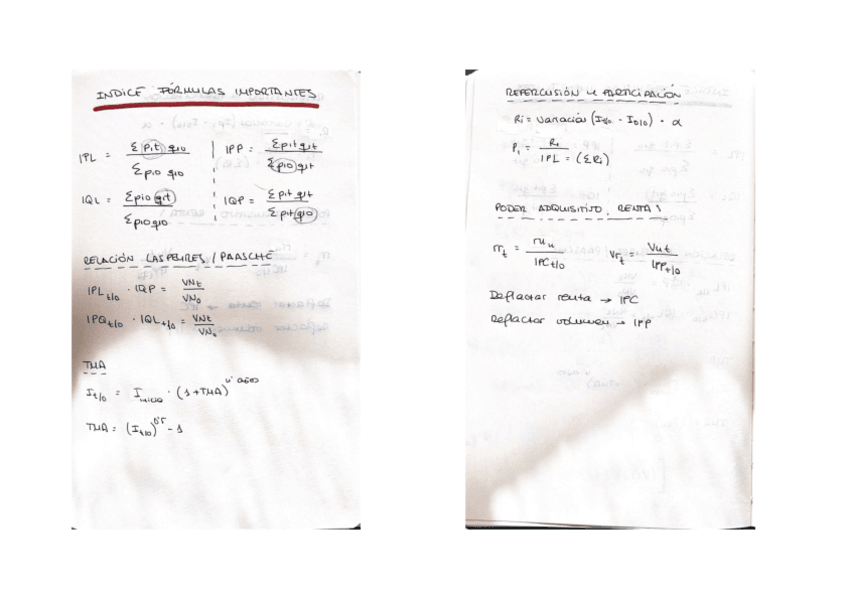 INDICE FÓRMULAS IMPORTANTES
IPL = Σ pit qio / Σ pio qio
IPP = Σ pit qit / Σ pio qit
IQL = Σ pio qit / Σ pio qio
IQP = Σ pit qit / Σ pit qio
RELACIÓN LASPEIRES / PAASCHE
IPL t/o · IQP = VNt / VNo
IPQ t/o · IQL t/o = VNt / VNo
TMA
I t/o = I inicio · (1+TMA)^nº años
TMA = (I t/o) - 1
REPERCUSIÓN Y PARTICIPACIÓN
Ri = variación (It/o - Io/o) · α
Pi = Ri / IPL = (ΣRi)
PODER ADQUISITIVO, RENTA
rrt = / IPC t/o
Vrt = Vnt / IPP t/o
Deflactar renta → IPC
Deflactar volumen → IPP